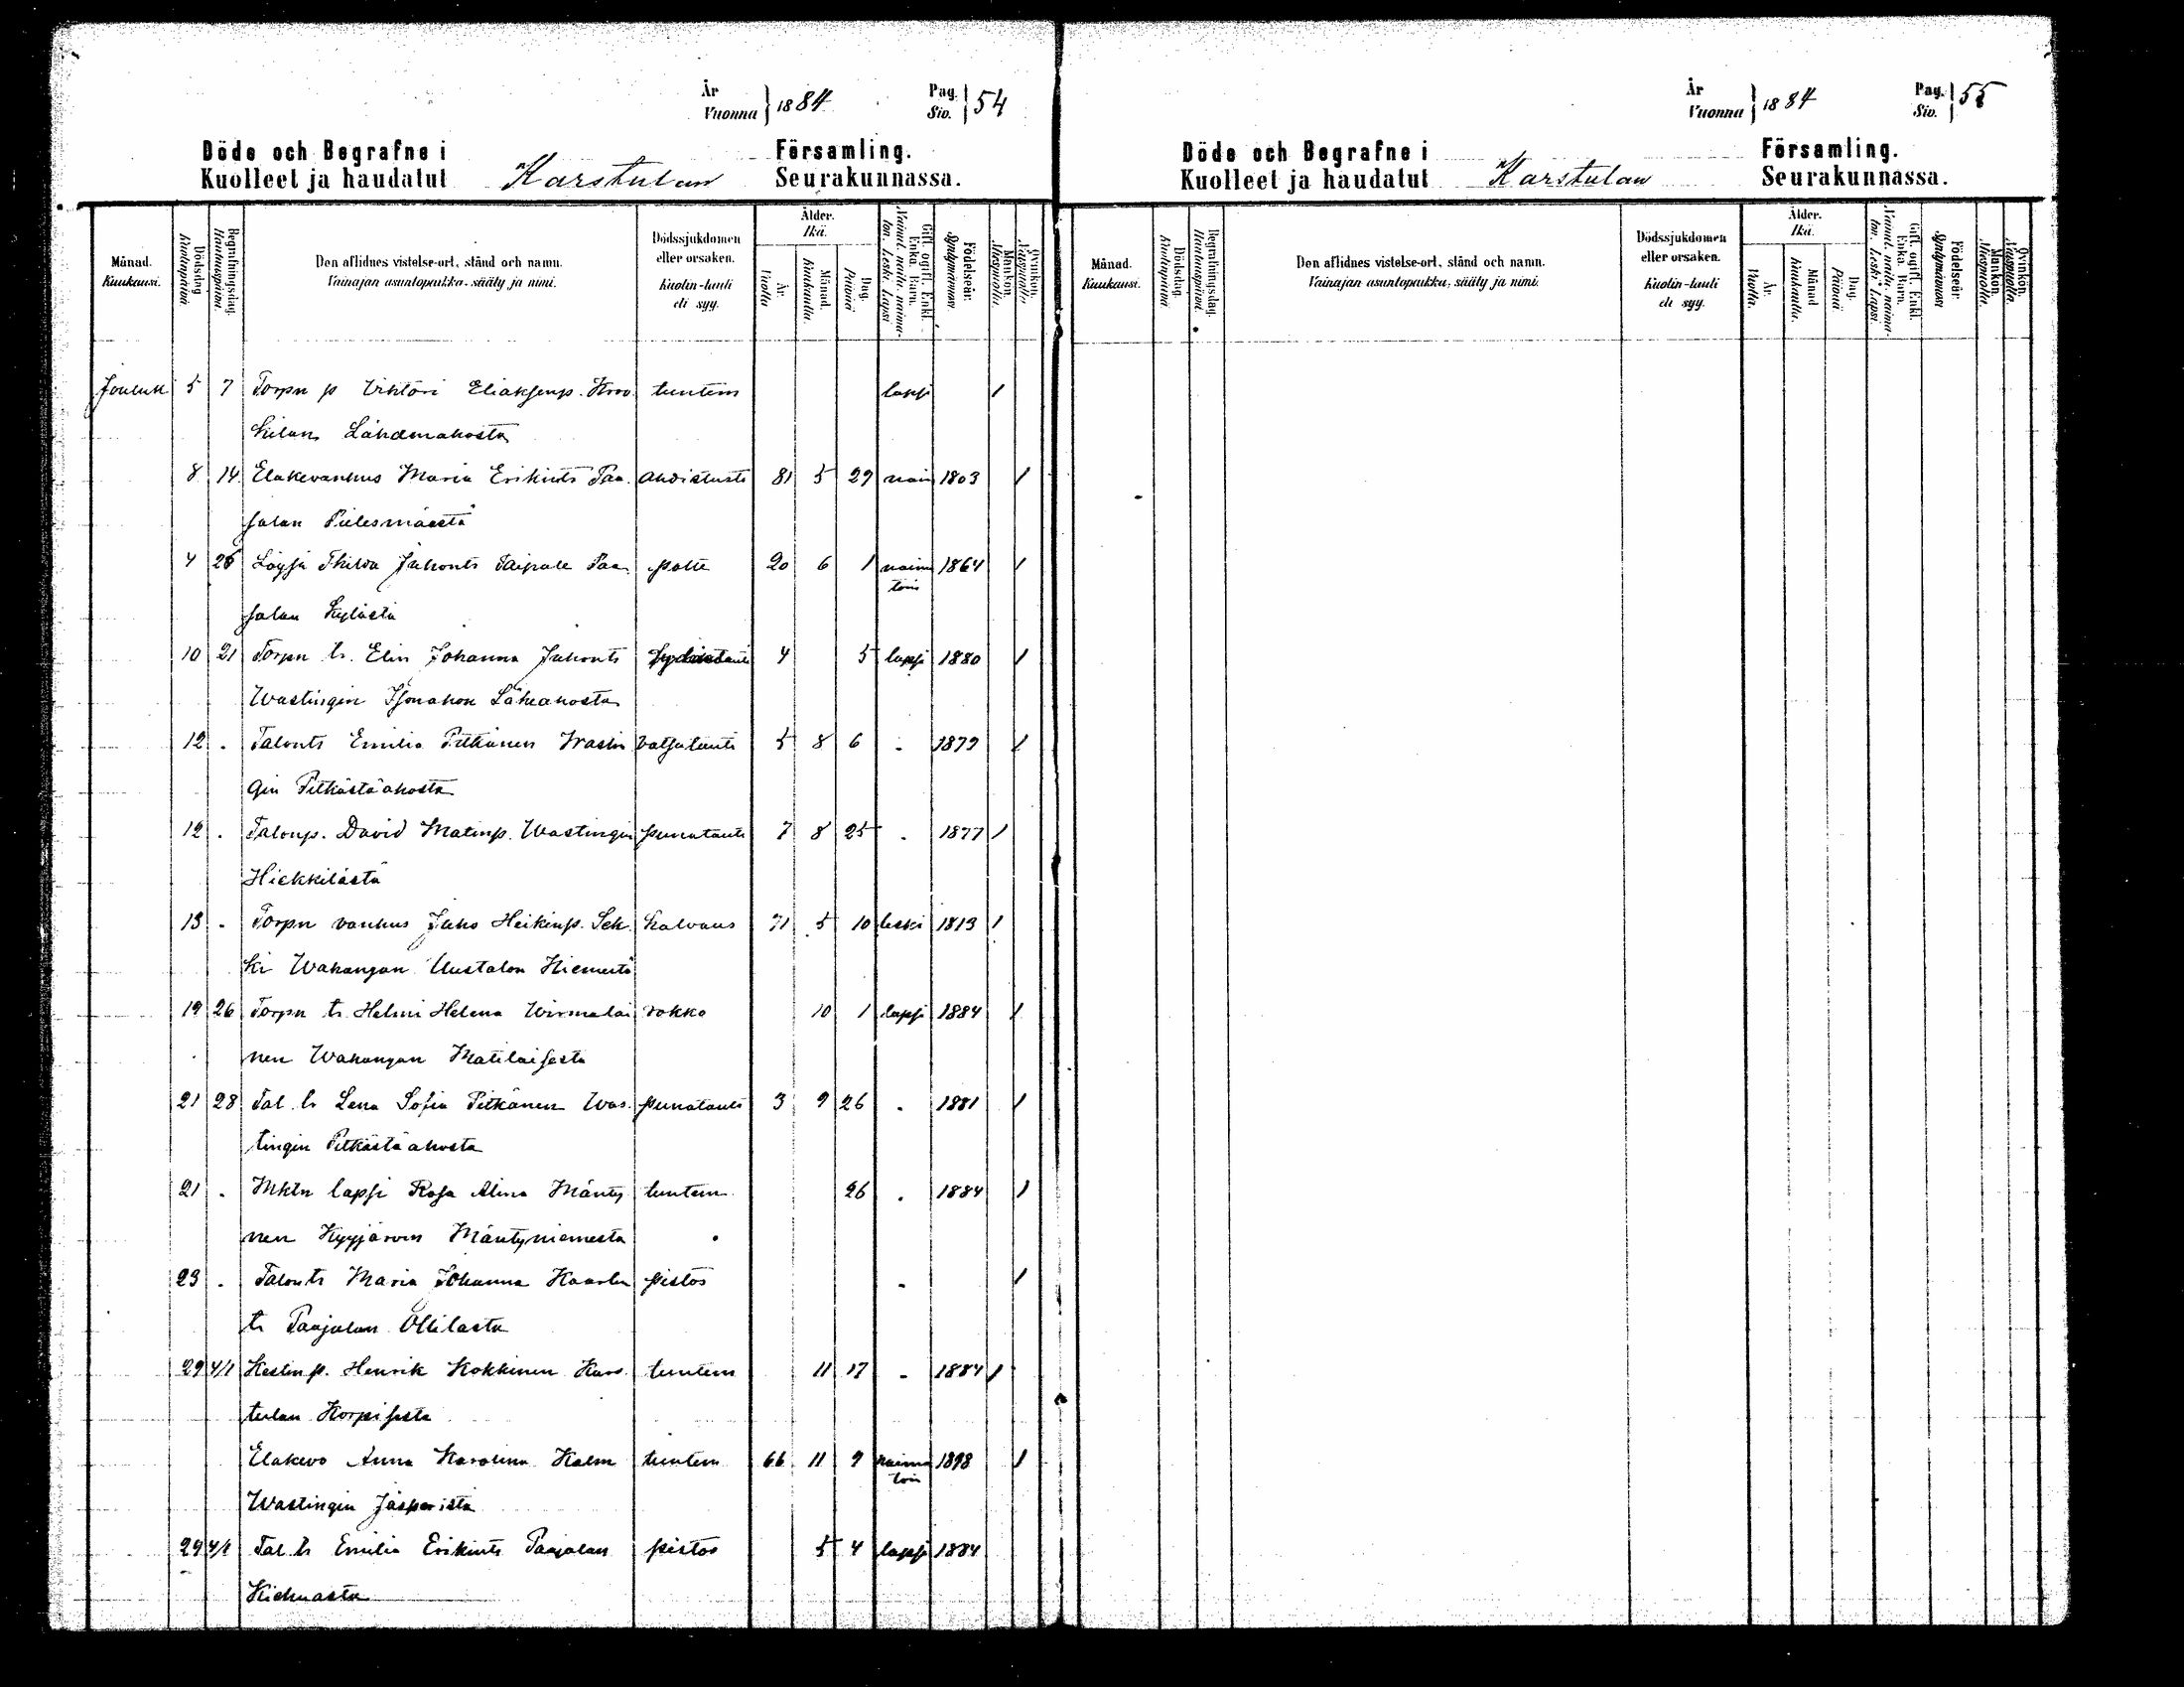 År Vuonna } 1884 Pag. Siv. } 54
Döde och Begrafne i Församling.
Kuolleet ja haudatut Karstulan Seurakunnassa.
Månad. Kuukausi. Dödsdag Kuolinpäivä Begrafningsdag. Hautauspäivä. Den aflidnes vistelse-ort, stånd och namn. Vainajan asuntopaikka, sääty ja nimi. Dödssjukdomen eller orsaken. Kuolin-tauti eli syy. Ålder. Ikä. År. Vuotta Månad. Kuukautta. Dag. Päivää Gift, ogift, Enkl. Enka. Barn. Nainut, naitu, naimaton. Leski. Lapsi Födelseår. Syntymävuosi Mankön. Miespuolia. Qvinkön. Vaispuolia.
Jouluk 5 7 Torpn p Viktori Eliaksenp. lapsi 1 tuntem
kilan Lähdemahosta
8 14 Eläkevanhus Maria Erikints Paa- Ahdistusta 81 5 29 nain 1803 1
jalan Pielesmäestä
4 26 Löysä Thilda Juhonts Taipale Paa- polte 20 6 1 naima 1864 1
toin
jalan Kylästä
10 21 Torpn tr. Elin Johanna Juhonts 4 5 lapsi 1880 1
Wastingin Isonahon Läheahosta
12 . Talonts Emilia Pitkänen Wastin vatsatauti 5 8 6 . 1879 1
gin Pitkästäahosta
12 . Talonp. David Matinp. Wastingin punatauti 7 8 25 . 1877 1
Hiekkilästä
13 . Torpn vanhus Juho Heikinp. Sek- kalvaus 71 5 10 leski 1813 1
ki Wahangan Uustalon Niemestä
19 26 Torpn tr Helmi Helena Wirmalai rokko 10 1 lapsi 1884 1
nen Wahangan Matilaisesta
21 28 Tal. tr Lena Sofia Pitkänen Was- punatauti 3 9 26 . 1881 1
tingin Pitkästäahosta
21 . Mktn lapsi Rosa Alina Mänty tuntem 26 . 1884 1
nen Kyyjärven Mäntyniemestä
23 . Talonts Maria Johanna Kaarlen pistos . 1
tr Paajalan Ollilasta
29 4/1 Kestinp. Henrik Kokkinen Kars- tuntem 11 17 . 1884 1
tulan Korpisesta
Eläkevo Anna Karolina Kalm tuntem 66 11 9 naima 1898 1
toin
Wastingin Jäsperistä
29 4/1 Tal. tr Emilia Erikints Paajalan pistos 5 4 lapsi 1884
Kiehuasta
År Vuonna } 1884 Pag. Siv. } 55
Döde och Begrafne i Församling.
Kuolleet ja haudatut Karstulan Seurakunnassa.
Månad. Kuukausi. Dödsdag. Kuolinpäivä Begrafningsdag. Hautauspäivä. Den aflidnes vistelse-ort, stånd och namn. Vainajan asuntopaikka, sääty ja nimi. Dödssjukdomen eller orsaken. Kuolin-tauti eli syy. Ålder. Ikä. År. Vuotta. Månad Kuukautta. Dag. Päivää Gift, ogift, Enkl. Enka. Barn. Nainut, naitu, naimaton. Leski. Lapsi. Födelseår Syntymävuosi Mankön. Miespuolia. Qvinkön. Vaispuolia.